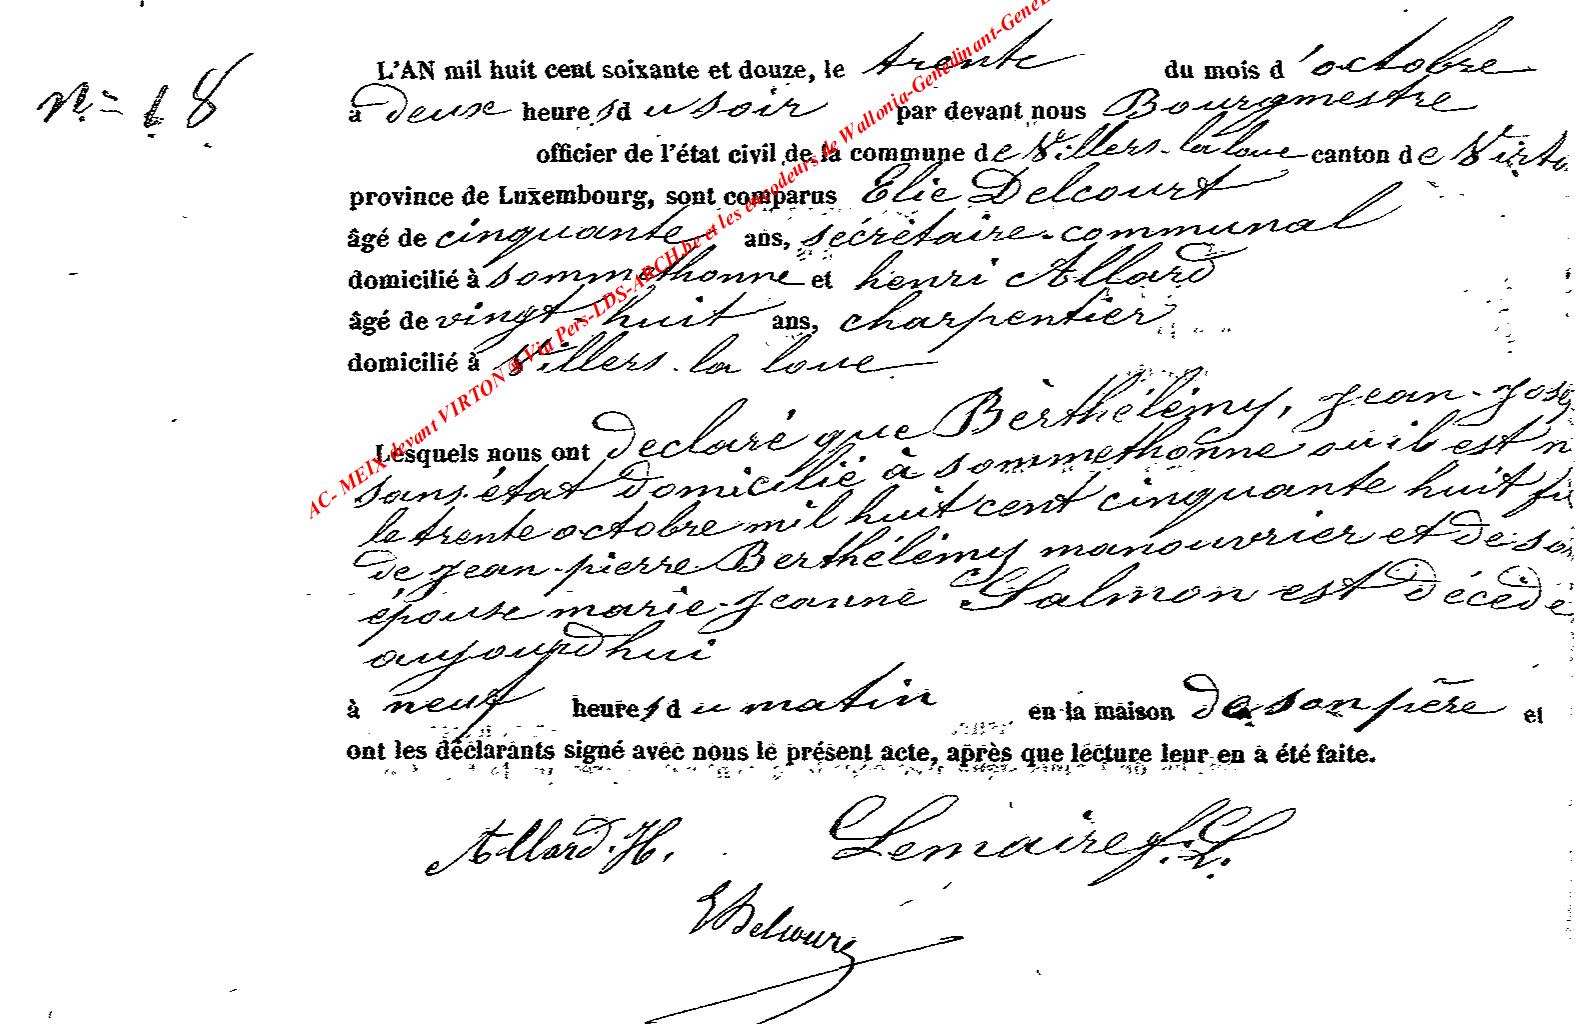 N.º 18
L'AN mil huit cent soixante et douze, le trente du mois d'octobre
à deux heures du soir par devant nous Bourgmestre
officier de l'état civil de la commune de Villers-la loue canton de Virto
province de Luxembourg, sont comparus Elie Delcourt
âgé de cinquante ans, sécrétaire-communal
domicilié à sommethonne et henri Allard
âgé de vingt huit ans, charpentier
domicilié à Villers-la loue
Lesquels nous ont déclaré que Bèrthélémy, Jean-Jose
sans état domicilié à sommethonne où il est n
le trente octobre mil huit cent cinquante huit fi
de Jean-pierre Berthélémy manouvrier et de son
épouse marie-Jeanne Salmon est décédé
aujourd'hui
à neuf heures du matin en la maison de son père et
ont les déclarants signé avec nous le présent acte, après que lecture leur en a été faite.
Allard.H. Lemaire J.L.
EDelcourt
AC- MEIX devant VIRTON @ Via Pers-LDS-ARCH.be et les encodeurs de Wallonia-Genedinant-GeneL